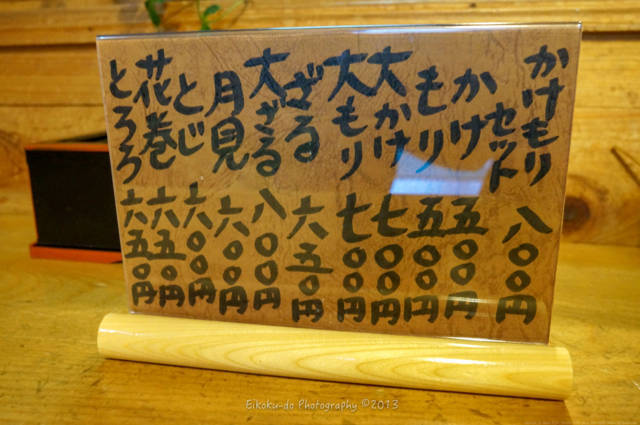 かけもりセット 八〇〇円
かけ 五〇〇円
もり 五〇〇円
大かけ 七〇〇円
大もり 七〇〇円
ざる 六五〇円
大ざる 八〇〇円
月見 六〇〇円
とじ 六〇〇円
花巻 六五〇円
とろろ 六五〇円
Eikoku-do Photography ©2013